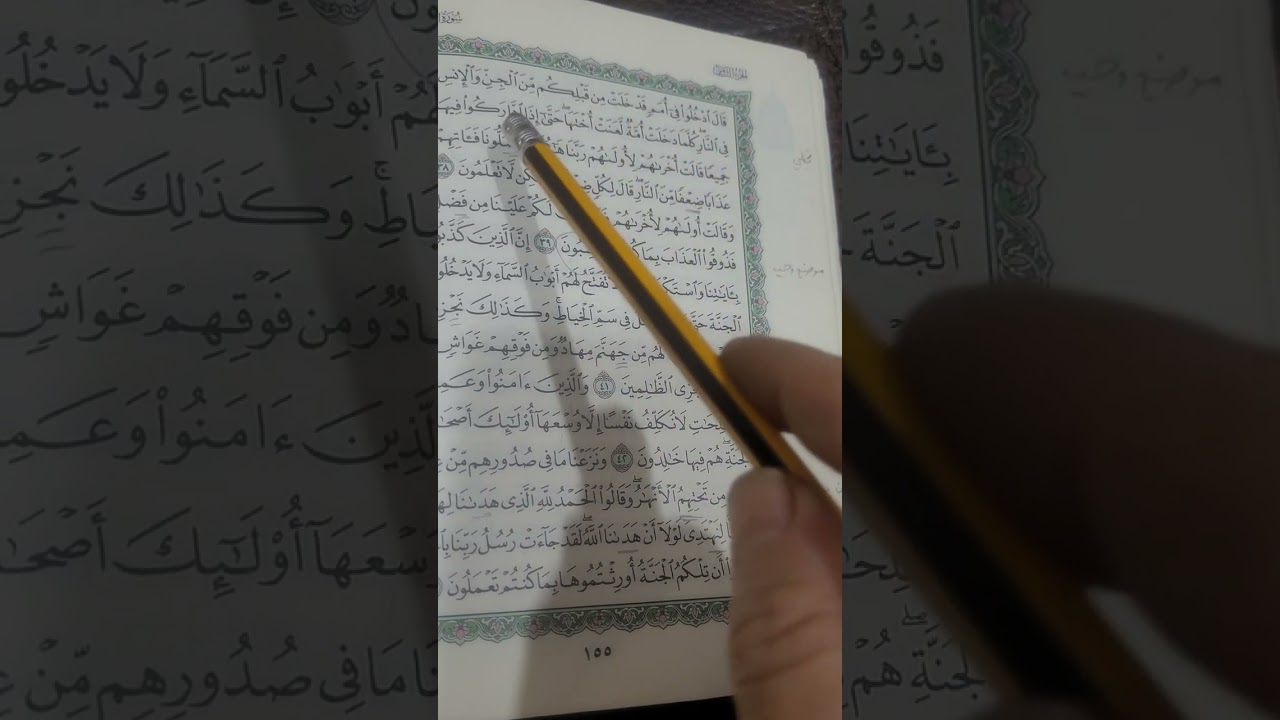 سُورَةُ
قَالَ ٱدْخُلُوا۟ فِىٓ أُمَمٍ قَدْ خَلَتْ مِن قَبْلِكُم مِّنَ ٱلْجِنِّ وَٱلْإِنسِ
فِى ٱلنَّارِ كُلَّمَا دَخَلَتْ أُمَّةٌ لَّعَنَتْ أُخْتَهَا حَتَّىٰٓ إِذَا ٱدَّارَكُوا۟ فِيهَا
جَمِيعًا قَالَتْ أُخْرَىٰهُمْ لِأُولَىٰهُمْ رَبَّنَا فَـَٔاتِهِمْ
عَذَابًا ضِعْفًا مِّنَ ٱلنَّارِ قَالَ لِكُلٍّ لَّا تَعْلَمُونَ ٣٨
وَقَالَتْ أُولَىٰهُمْ لِأُخْرَىٰهُمْ لَكُمْ عَلَيْنَا مِن فَضْلٍ
فَذُوقُوا۟ ٱلْعَذَابَ بِمَا ٣٩ إِنَّ ٱلَّذِينَ كَذَّبُوا۟
بِـَٔايَٰتِنَا تُفَتَّحُ لَهُمْ أَبْوَٰبُ ٱلسَّمَآءِ وَلَا يَدْخُلُونَ
ٱلْجَنَّةَ فِى سَمِّ ٱلْخِيَاطِ وَكَذَٰلِكَ نَجْزِى
لَهُم مِّن جَهَنَّمَ مِهَادٌ وَمِن فَوْقِهِمْ غَوَاشٍ
ٱلظَّٰلِمِينَ ٤١ وَٱلَّذِينَ ءَامَنُوا۟ وَعَمِ
لَا نُكَلِّفُ نَفْسًا إِلَّا وُسْعَهَآ أُو۟لَٰٓئِكَ أَصْحَٰ
ٱلْجَنَّةِ هُمْ فِيهَا خَٰلِدُونَ ٤٢ وَنَزَعْنَا مَا فِى صُدُورِهِم مِّنْ
مِن تَحْتِهِمُ ٱلْأَنْهَٰرُ وَقَالُوا۟ ٱلْحَمْدُ لِلَّهِ ٱلَّذِى هَدَىٰنَا لِهَ
لِنَهْتَدِىَ لَوْلَآ أَنْ هَدَىٰنَا ٱللَّهُ لَقَدْ جَآءَتْ رُسُلُ رَبِّنَا بِٱ
أَن تِلْكُمُ ٱلْجَنَّةُ أُورِثْتُمُوهَا بِمَا كُنتُمْ تَعْمَلُونَ
١٥٥
موضع وحيد